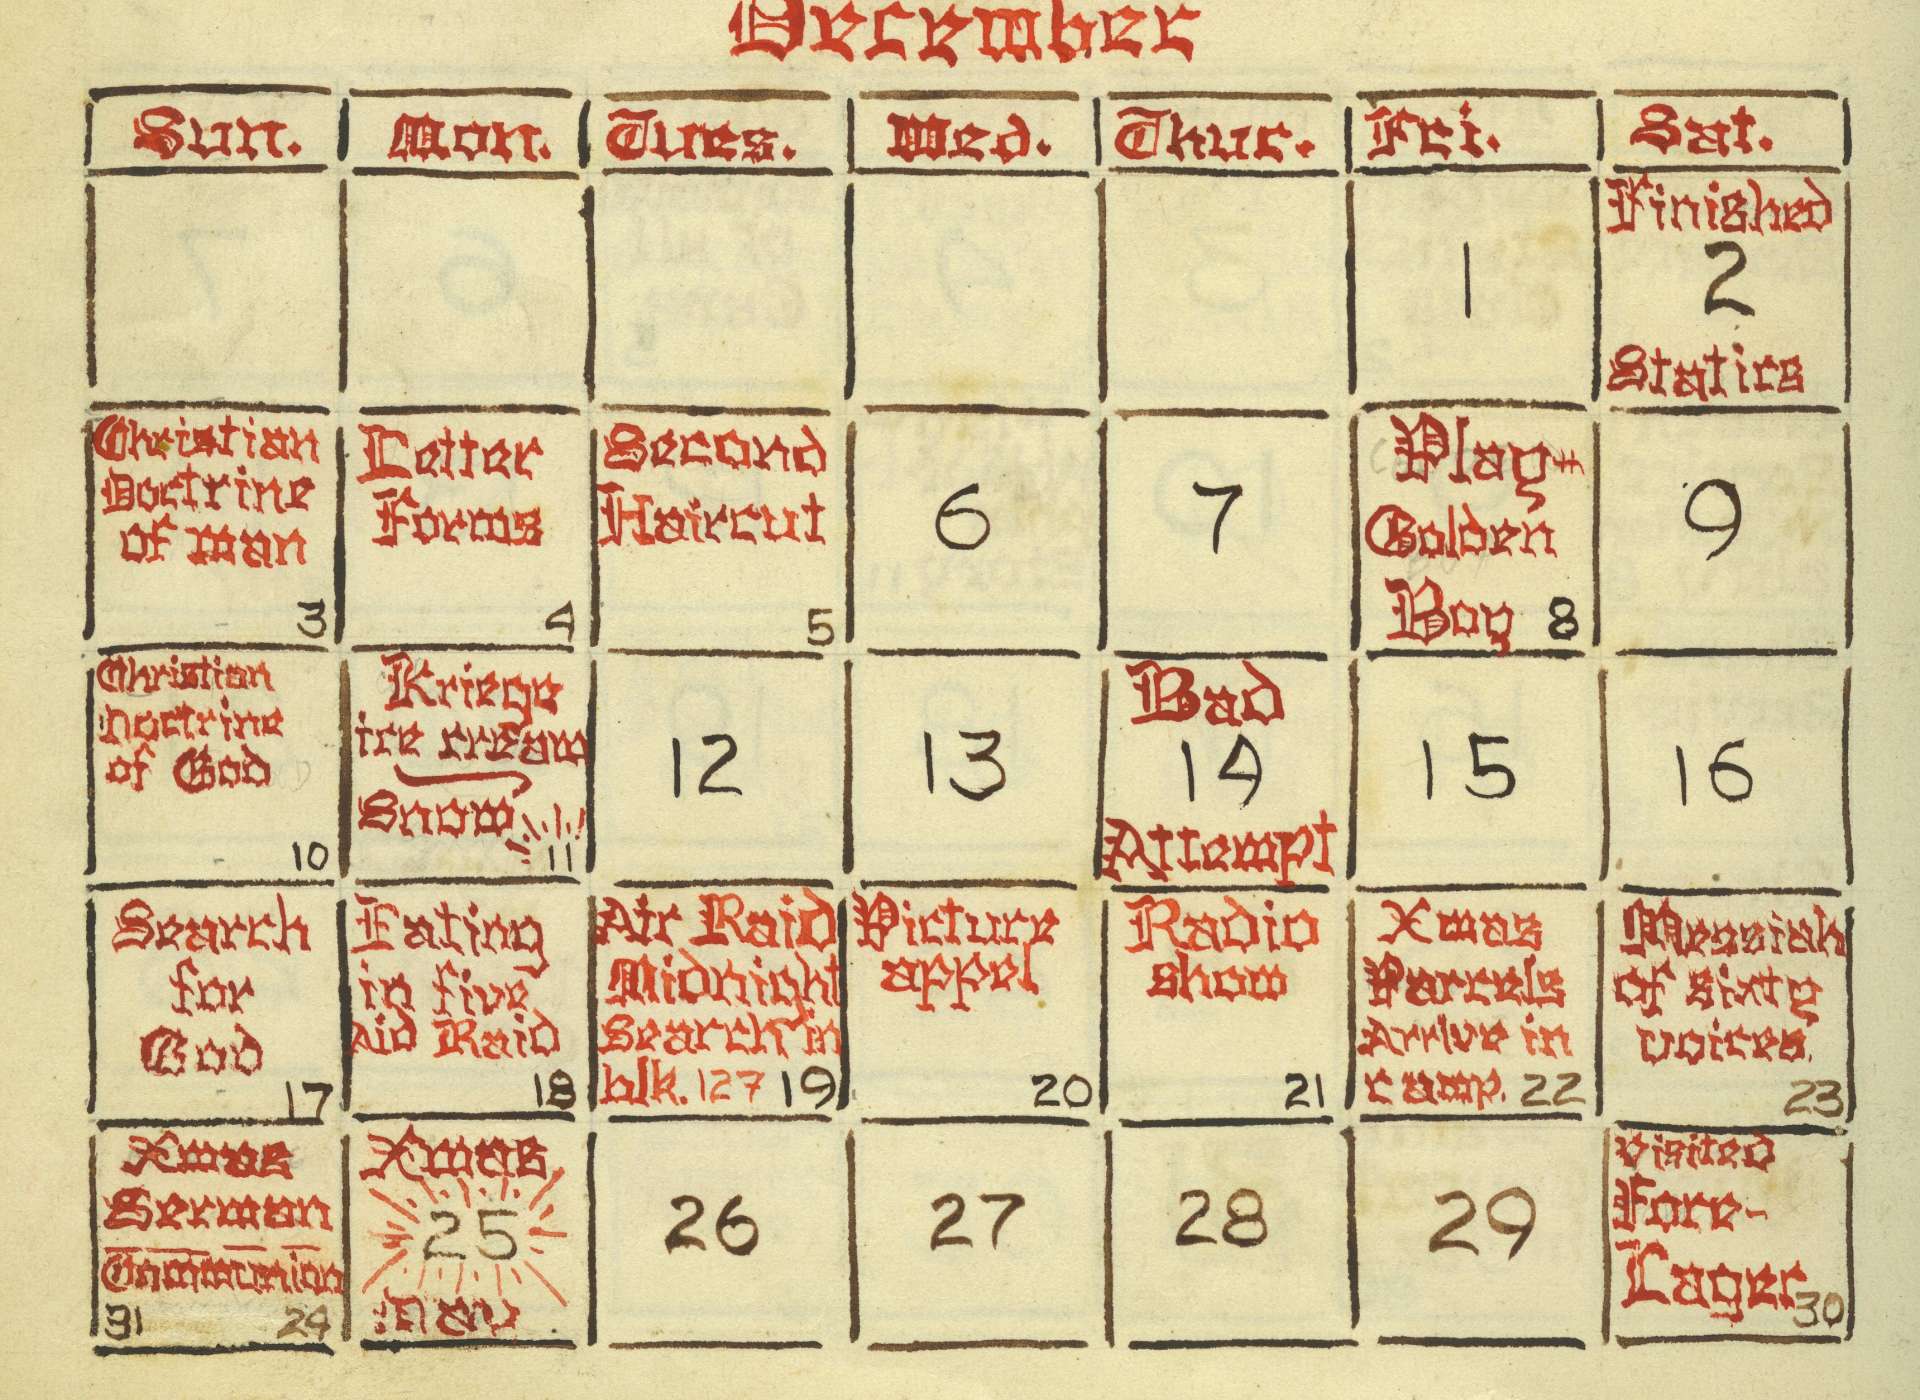 December
Sun. Mon. Tues. Wed. Thur. Fri. Sat.
1
Finished
2
Statics
Christian
Doctrine
of man
3
Letter
Forms
4
Second
Haircut
5
6
7
Play-
Golden
Boy 8
9
Christian
Doctrine
of God
10
Kriege
ice cream
Snow
11
12
13
Bad
14
Attempt
15
16
Search
for
God
17
Eating
in five
Aid Raid
18
Air Raid
Midnight
Search in
blk. 127 19
Picture
appel
20
Radio
show
21
Xmas
Parcels
Arrive in
camp. 22
Messiah
of sixty
voices.
23
Xmas
Serman
Communion
31 24
Xmas
25
Day
26
27
28
29
Visited
Fore-
Lager
30